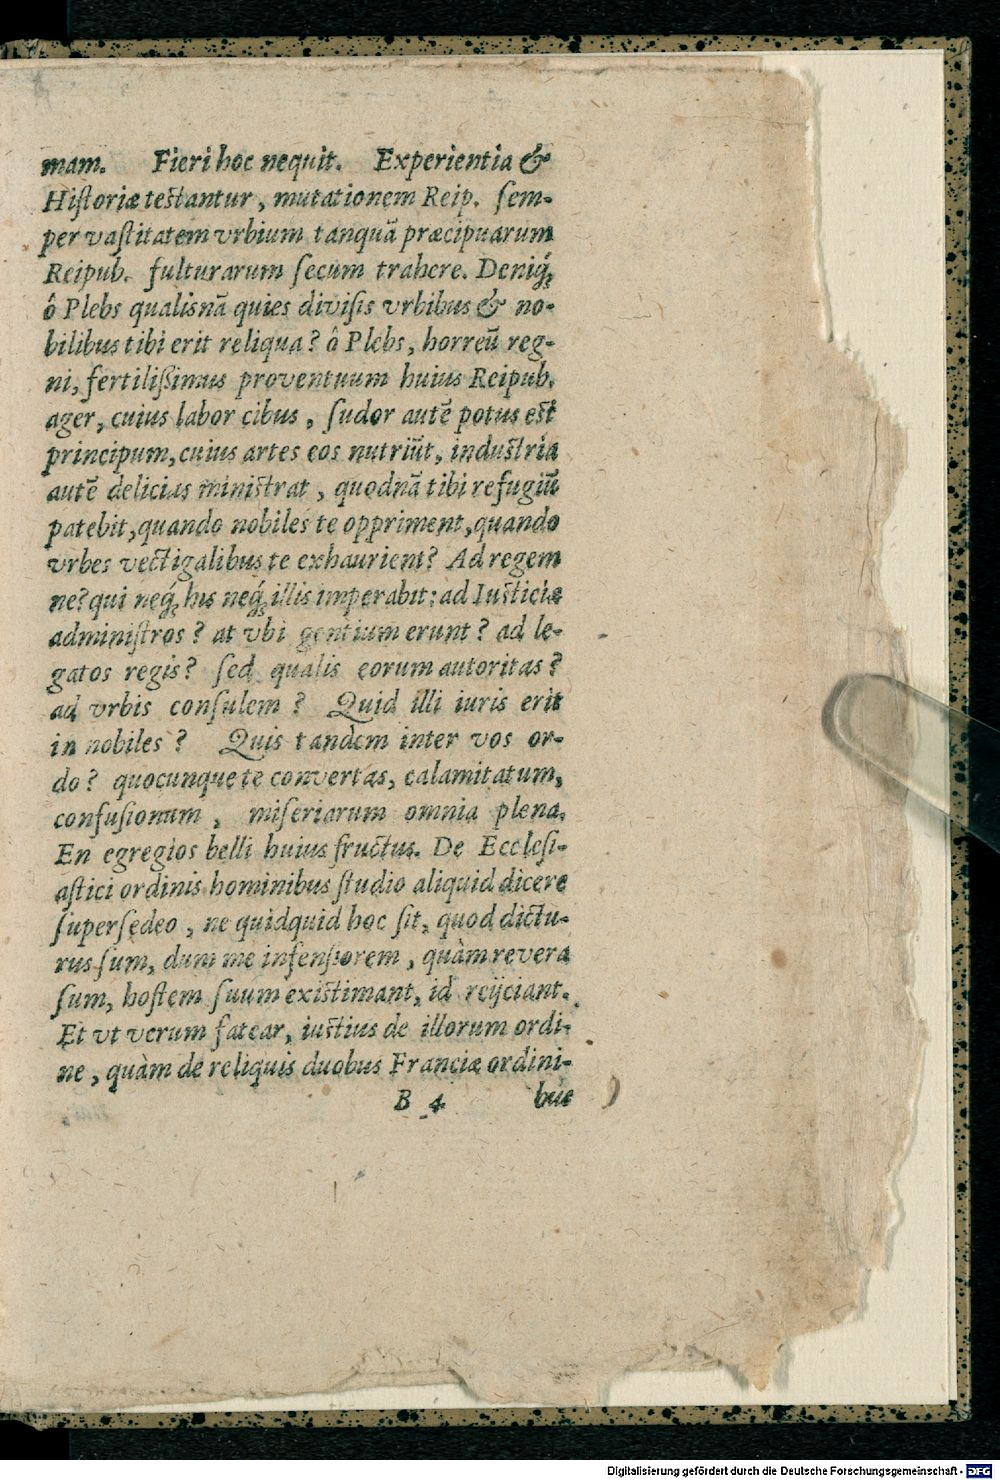 mam. Fieri hoc nequit. Experientia &
Historiæ testantur, mutationem Reip. sem-
per vastitatem vrbium tanquā præcipuarum
Reipub. fulturarum secum trahere. Deniq́;
ô Plebs qualisnā quies divisis vrbibus & no-
bilibus tibi erit reliqua? ô Plebs, horreū reg-
ni, fertilißimus proventuum huius Reipub.
ager, cuius labor cibus, sudor autē potus est
principum, cuius artes eos nutriūt, industria
autē delicias ministrat, quodnā tibi refugiū
patebit, quando nobiles te oppriment, quando
vrbes vectigalibus te exhaurient? Ad regem
ne? qui neq́; his neq́; illis imperabit: ad Iusticiæ
administros? at vbi gentium erunt? ad le-
gatos regis? sed qualis eorum autoritas?
ad vrbis consulem? Quid illi iuris erit
in nobiles? Quis tandem inter vos or-
do? quocunque te convertas, calamitatum,
confusionum, miseriarum omnia plena.
En egregios belli huius fructus. De Ecclesi-
astici ordinis hominibus studio aliquid dicere
supersedeo, ne quidquid hoc sit, quod dictu-
rus sum, dum me infensiorem, quàm revera
sum, hostem suum existimant, id reijciant.
Et vt verum fatear, iustius de illorum ordi-
ne, quàm de reliquis duobus Franciæ ordini-
B 4 bus
Digitalisierung gefördert durch die Deutsche Forschungsgemeinschaft - DFG